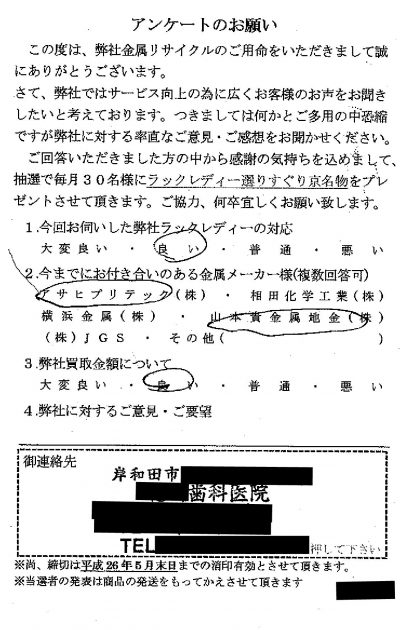 アンケートのお願い
この度は、弊社金属リサイクルのご用命をいただきまして誠
にありがとうございます。
さて、弊社ではサービス向上の為に広くお客様のお声をお聞き
したいと考えております。つきましては何かとご多用の中恐縮
ですが弊社に対する率直なご意見・ご感想をお聞かせください。
ご回答いただきました方の中から感謝の気持ちを込めまして、
抽選で毎月30名様にラックレディー選りすぐり京名物をプレ
ゼントさせて頂きます。ご協力、何卒宜しくお願い致します。
1.今回お伺いした弊社ラックレディーの対応
大変良い ・ 良い ・ 普通 ・ 悪い
2.今までにお付き合いのある金属メーカー様(複数回答可)
アサヒプリテック(株) ・ 相田化学工業(株)
横浜金属(株) ・ 山本貴金属地金(株)
(株)JGS ・ その他( )
3.弊社買取金額について
大変良い ・ 良い ・ 普通 ・ 悪い
4.弊社に対するご意見・ご要望
御連絡先
岸和田市
歯科医院
TEL
押して下さい
※尚、締切は平成26年5月末日までの消印有効とさせて頂きます。
※当選者の発表は商品の発送をもってかえさせて頂きます